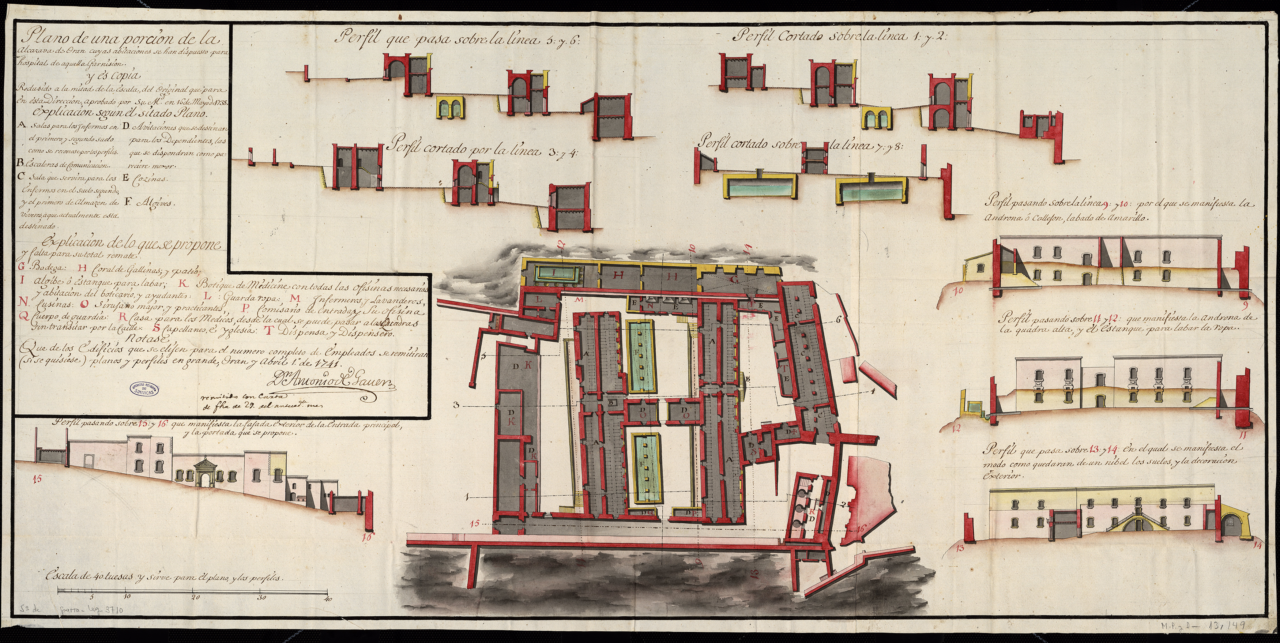 Plano de una porcion de la
Alcazana de Oran cuyas abitaciones se han dispuesto para
hospital de aquella Garnision.
y es Copia
Reducido a la mitad de la Escala, del Original que para
en esta Direccion, aprobado por Su M. en 16 de Mayo de 1738.
Explicacion segun el sitado Plano.
A Salas para los Enfermos en
el primero y segundo suelo
como se reconoce por los perfiles
B Escaleras de Comunicacion.
C Sala que servira para los
Enfermos en el suelo segundo,
y el primero de Almazen de
viveres a que actualmente esta
destinado.
D Abitaciones que se destinan
para los Dependientes, las
que se dispondran como pa-
reciere mejor
E Cozinas.
F Algives.
Explicacion de lo que se propone
y falta para su total remate.
G Bodega. H Corral de Gallinas, y patio;
I algibe ó estanque para labar, K Botica de Medicine con todas las ofisinas necesarias
y abitacion del boticario, y ayudante. L Guarda ropa. M Enfermeros y Lavanderos,
N Cusinas. O Sirujano mayor, y practicantes. P Comisario de Entradas, y Su ofisina
Q Cuerpo de guardia. R Casa para los Medicos, desde la cual, se puede pasar a las Quadras
sin transitar por la Calle. S Capellanes, é Yglesia. T Dispensa, y Dispensero.
Notase
Que de los Edificios que se elijen para el numero completo de Empleados se remitiran
(si se quisiese) planos y perfiles en grande, Oran y Abril 1º de 1741.
Dn Antonio de Gaver
remitido con Carta
de fha de 29 del
Perfil que pasa sobre la linea 5: y 6:
Perfil Cortado sobre la linea 1: y 2:
Perfil cortado por la linea 3: y 4:
Perfil cortado sobre la linea 7: y 8:
Perfil pasando sobre la linea 9: y 10: por el que se manifiesta la
Androna ó Callejon, labado de Amarillo.
10
9
Perfil pasando sobre 11 y 12: que manifiesta la Androna de
la quadra alta, y el Estanque, para labar de ropa.
12
11
Perfil que pasa sobre 13 y 14 en el qual se manifiesta el
modo como quedaran de un nibel los suelos, y la decoracion
Exterior.
13
14
Perfil pasando sobre 15: y 16: que manifiesta la fasada Exterior de la Entrada prinsipal,
y la portada que se propone.
15
16
12
10
14
H
H
G
L
M
K
D
K
D
K
D
A
A
A
A
E
B
C
D
D
D
E
T
6
5
3
1
15
Escala de 40 tuesas y sirve para el plano y los perfiles.
5
10
20
30
40